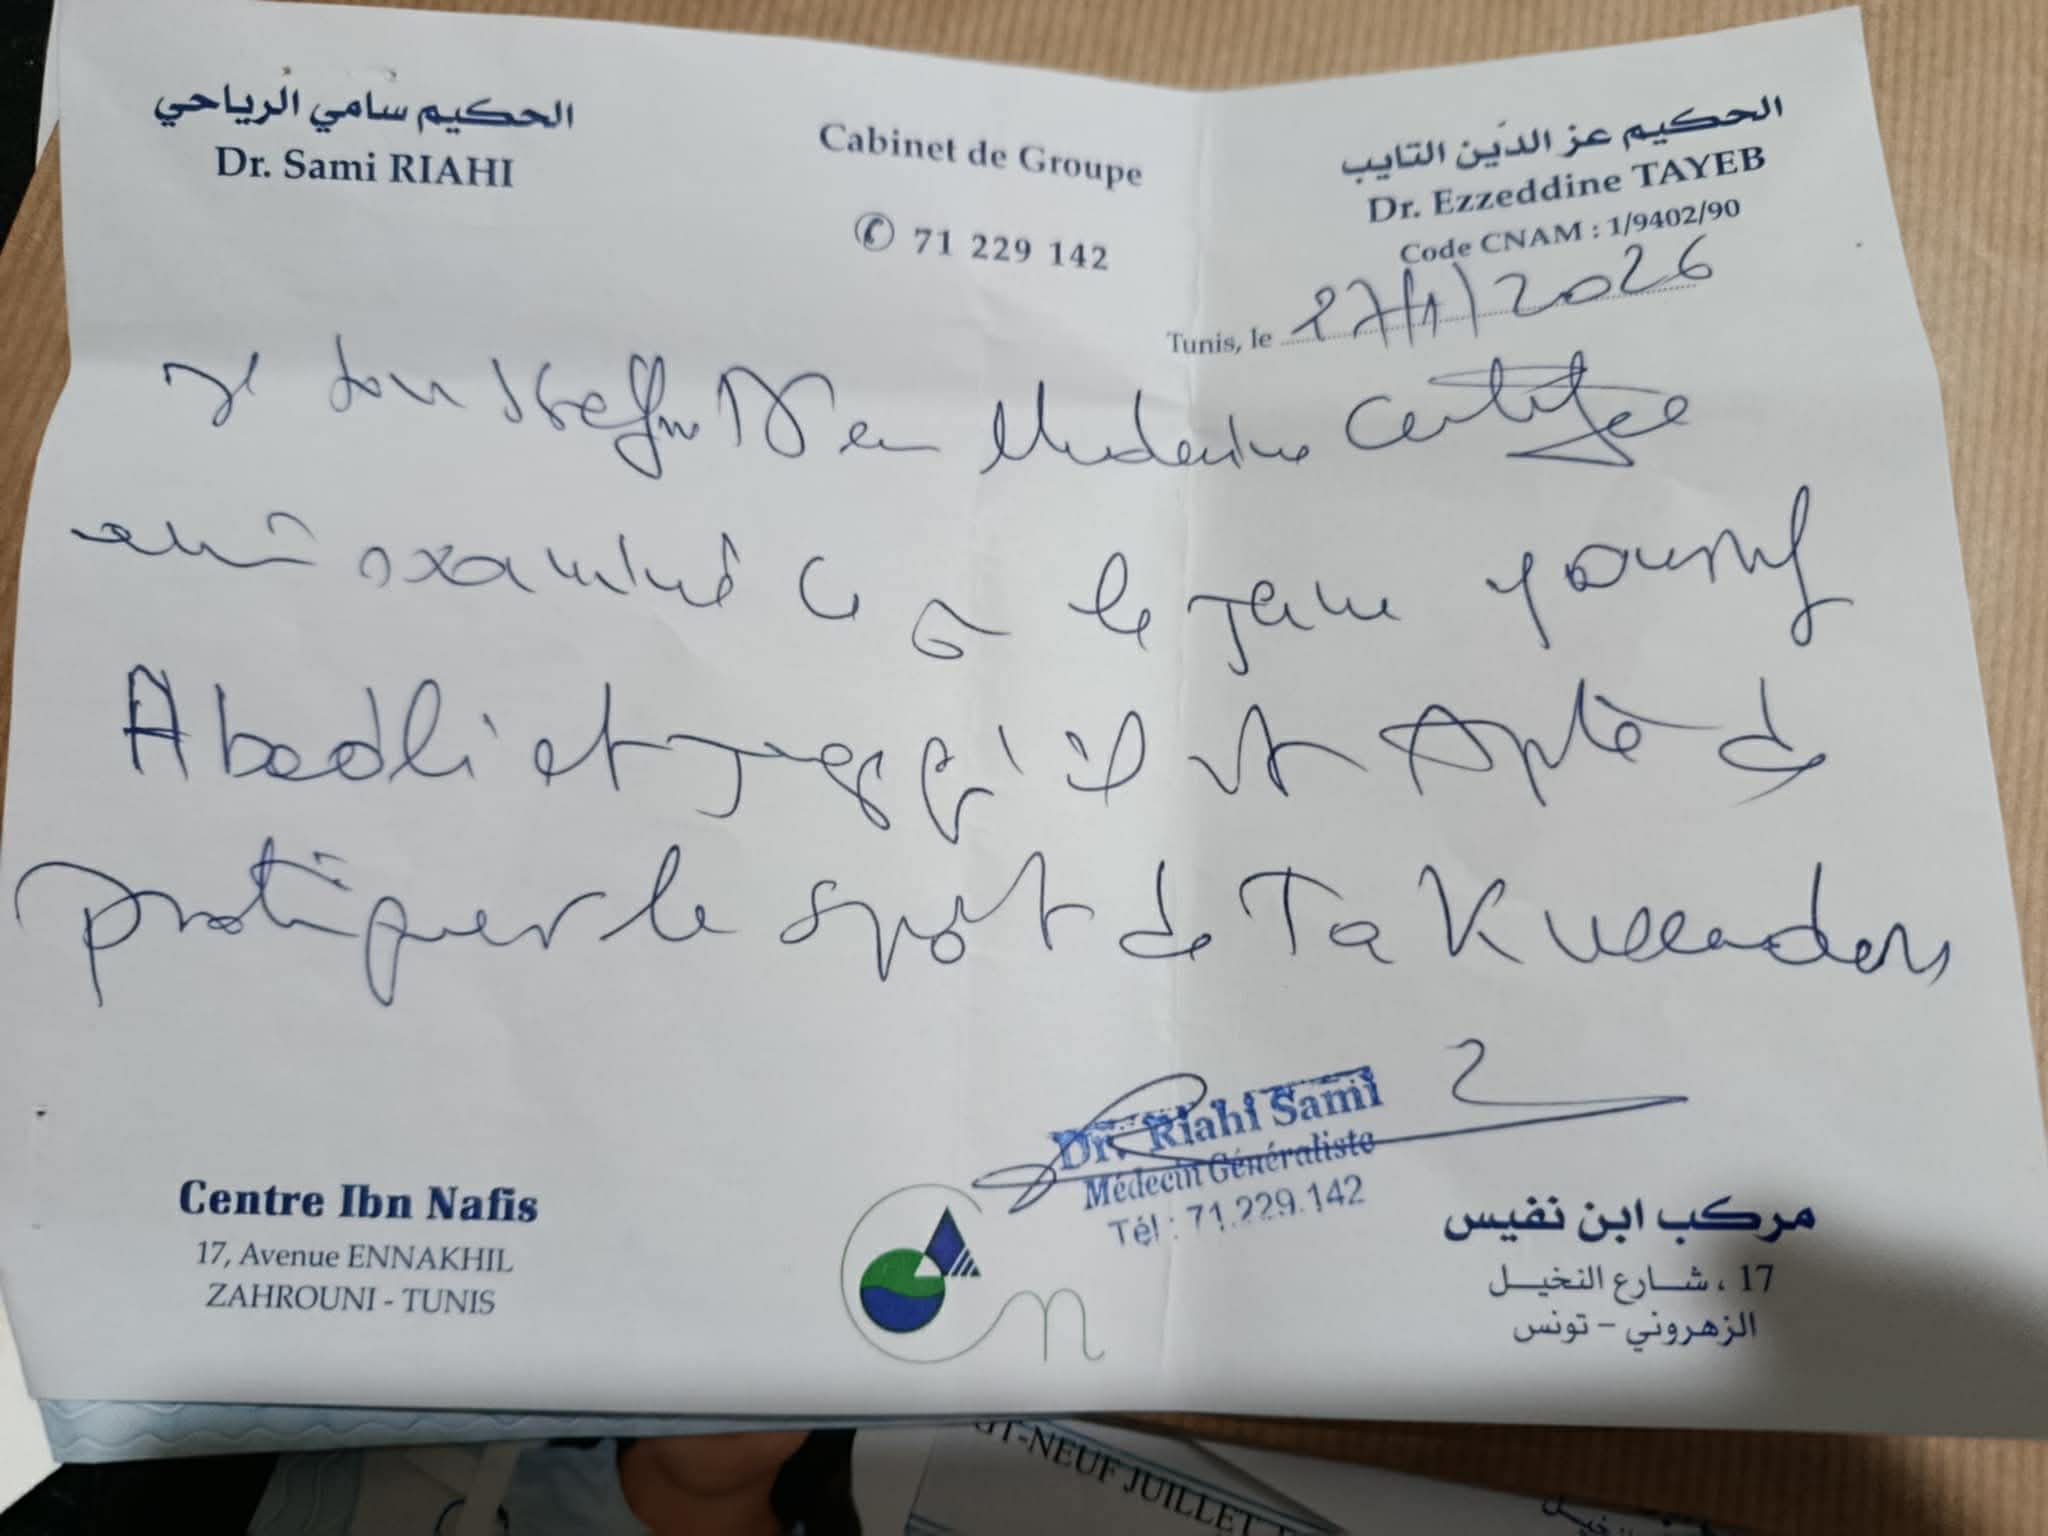 الحكيم سامي الرياحي
Dr. Sami RIAHI
Cabinet de Groupe
✆ 71 229 142
الحكيم عز الدّين التايب
Dr. Ezzeddine TAYEB
Code CNAM : 1/9402/90
Tunis, le 27/1/2026
Je soussigné Dr en Médecine certifie
avoir examiné ce jour le jeune Youssef
Abedli et juge qu'il est Apte de
pratiquer le sport de Takwendou
Dr. Riahi Sami
Médecin Généraliste
Tél : 71.229.142
Centre Ibn Nafis
17, Avenue ENNAKHIL
ZAHROUNI - TUNIS
مركب ابن نفيس
17 ، شارع النخيل
الزهروني - تونس
GT-NEUF JUILLET